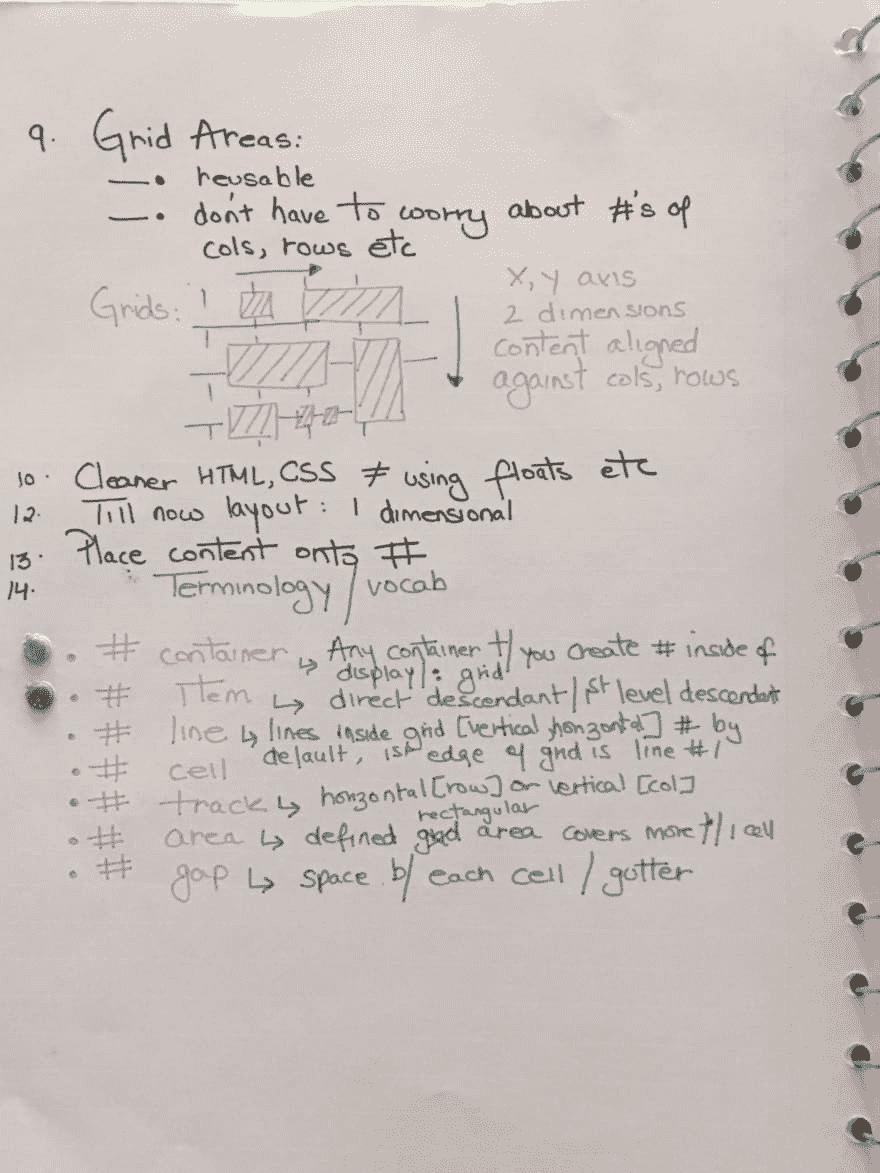 9. Grid Areas:
—• reusable
—• don't have to worry about #'s of
cols, rows etc
Grids:
X, y axis
2 dimensions
content aligned
against cols, rows
10. Cleaner HTML, CSS ≠ using floats etc
12. Till now layout: 1 dimensional
13. Place content onto #
14. Terminology / vocab
• # container ↳ Any container t/ you create # inside of
display/: grid
• # Item ↳ direct descendant / 1st level descendant
• # line ↳ lines inside grid [vertical, horizontal] # by
default, 1st edge of grid is line #1
• # cell
• # track ↳ horizontal [row] or vertical [col]
rectangular
• # area ↳ defined grid area covers more t/ 1 cell
• # gap ↳ space b/ each cell / gutter